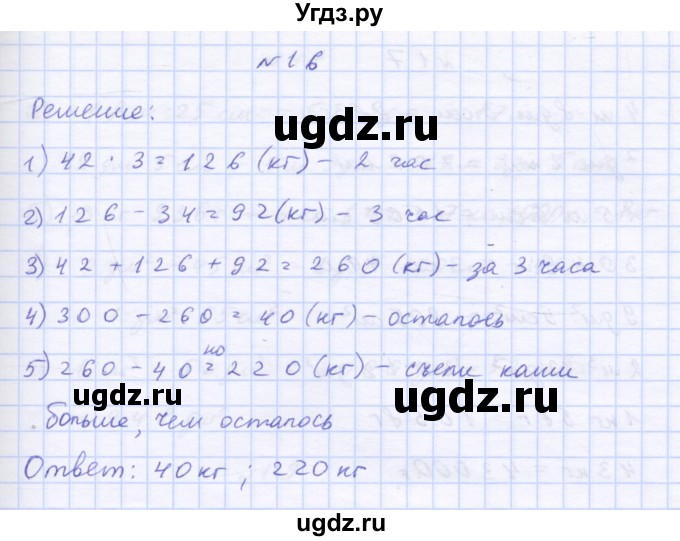 Угдз.ру
№16
Решение:
ugdz.ru
1) 42 · 3 = 126 (кг) – 2 час
2) 126 – 34 = 92 (кг) – 3 час
3) 42 + 126 + 92 = 260 (кг) – за 3 часа
4) 300 – 260 = 40 (кг) – осталось
на
5) 260 – 40 = 220 (кг) – съели каши
ugdz.ru ugdz.ru
больше, чем осталось
Ответ: 40 кг ; 220 кг
ugdz.ru